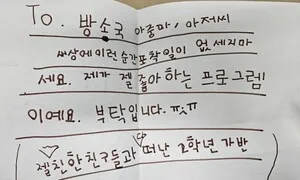 To. 방소국 아줌마, 아저씨
세상에 이런 순간포착 일이 없세지마
세요. 제가 젤 좋아하는 프로그램
이예요. 부탁입니다. ㅠㅠ
(젤 친한 친구들과 떠난 2학년 가반